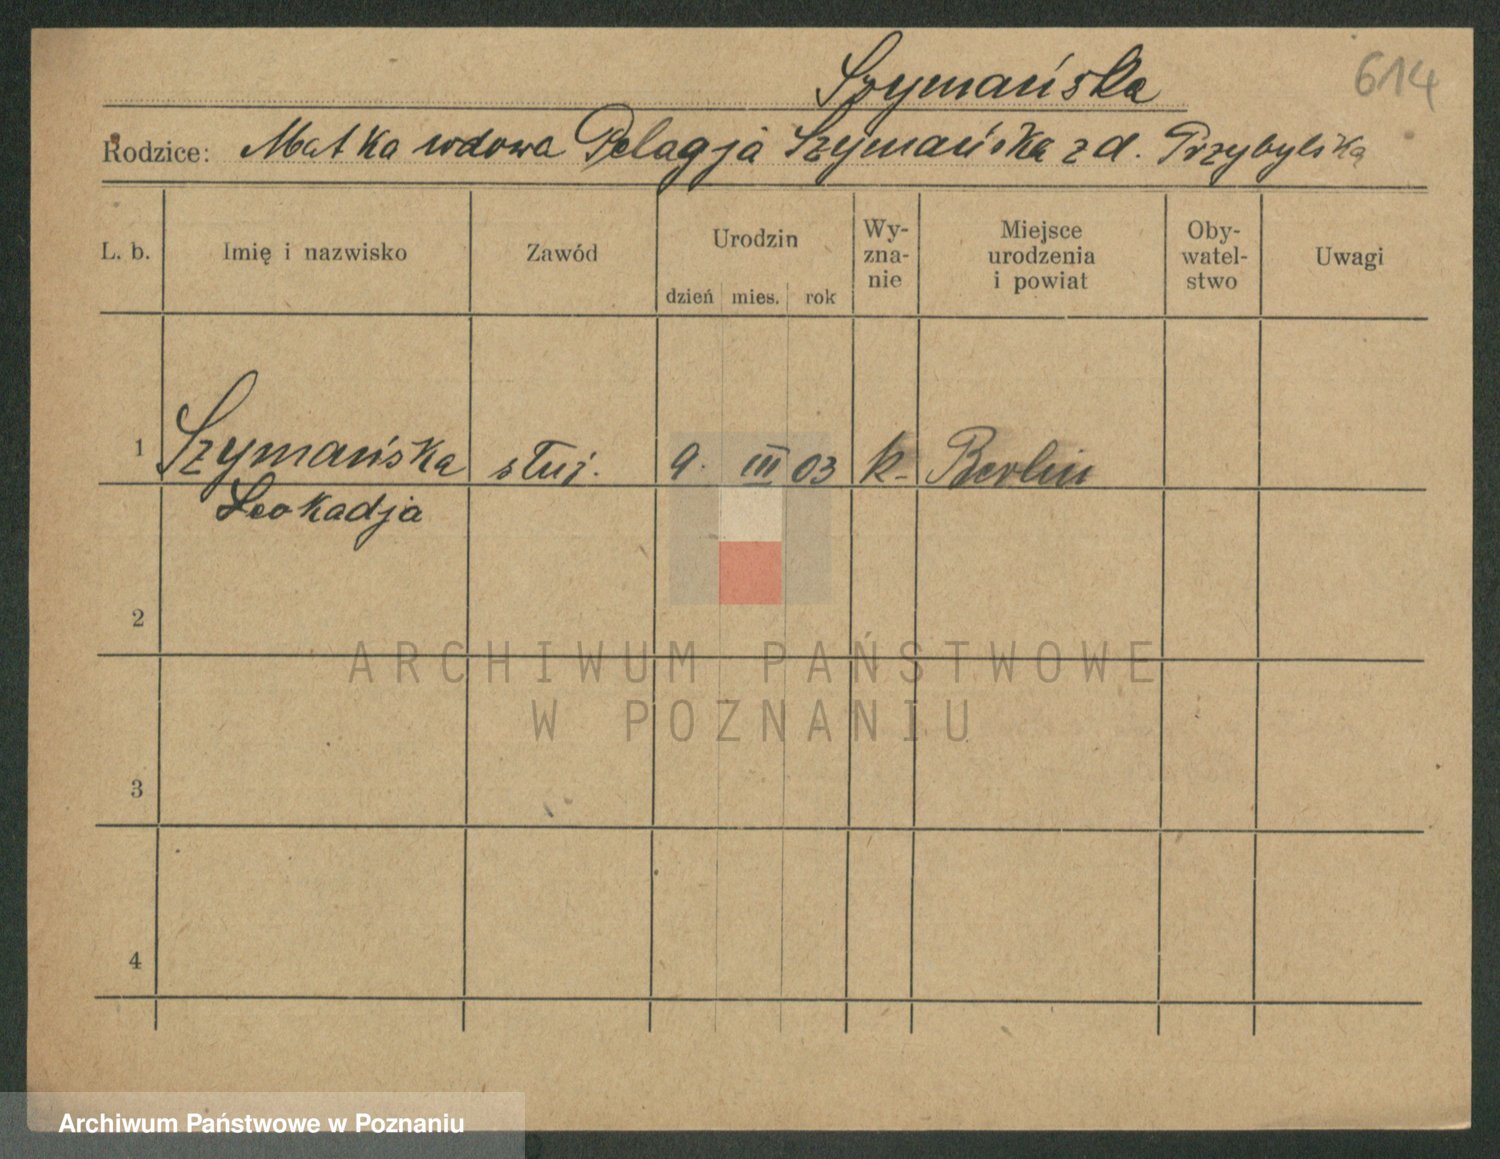 Szymańska 614
Rodzice: Matka wdowa Pelagja Szymańska z d. Przybylska
L. b. Imię i nazwisko Zawód Urodzin dzień mies. rok Wy-zna-nie Miejsce urodzenia i powiat Oby-watel-stwo Uwagi
1 Szymańska służ. 9. III 03 k- Berlin
Leokadja
2
ARCHIWUM PAŃSTWOWE
W POZNANIU
3
4
Archiwum Państwowe w Poznaniu